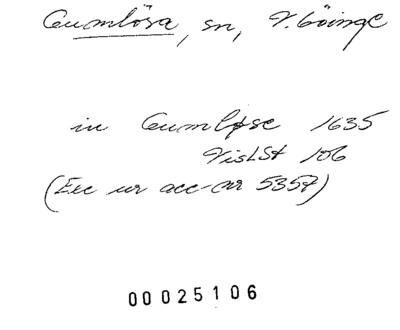 Gumlösa, sn, V. Göinge
in Gumløse 1635
VisLSt 106
(Exc ur acc-nr 5357)
00025106